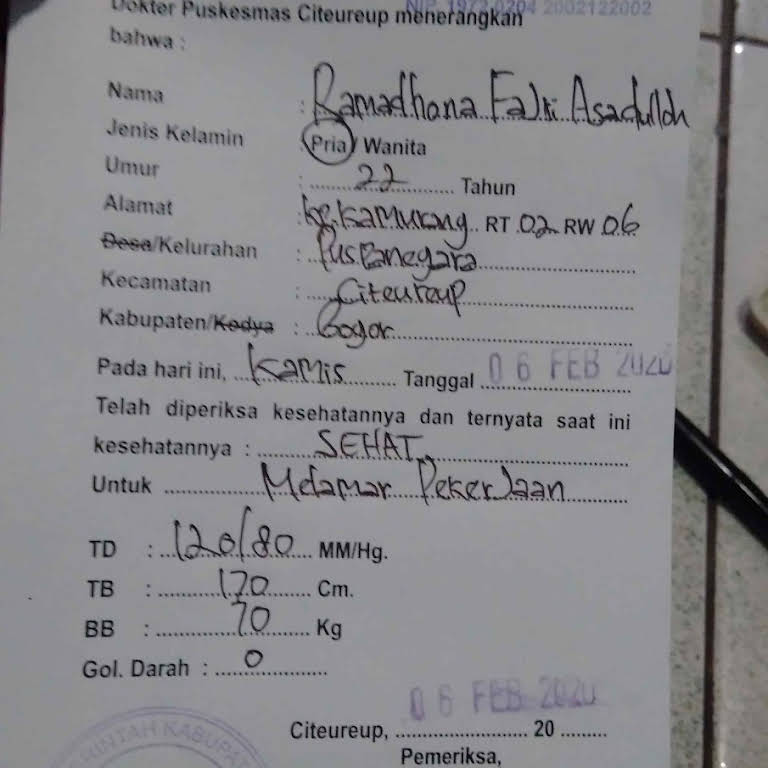 Dokter Puskesmas Citeureup menerangkan
NIP. 1972 0204 2002122002
bahwa :
Nama : Ramadhana Fajri Asadulloh
Jenis Kelamin : Pria / Wanita
Umur : 22 Tahun
Alamat : kp. Kamurang RT 02 RW 06
Desa/Kelurahan : Puspanegara
Kecamatan : Citeureup
Kabupaten/Kodya : Bogor
Pada hari ini, Kamis Tanggal 06 FEB 2020
Telah diperiksa kesehatannya dan ternyata saat ini
kesehatannya : SEHAT
Untuk Melamar Pekerjaan
TD : 120/80 MM/Hg.
TB : 170 Cm.
BB : 70 Kg
Gol. Darah : O
06 FEB 2020
Citeureup, 20
Pemeriksa,
RINTAH KABUPAT